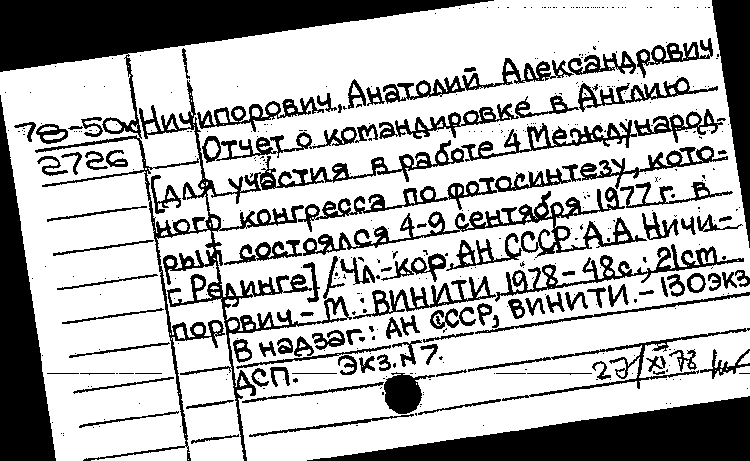 Ничипорович, Анатолий Александрович
78-50к
2726
Отчет о командировке в Англию
[для участия в работе 4 Международ-
ного конгресса по фотосинтезу, кото-
рый состоялся 4-9 сентября 1977 г. в
г. Рединге] / Чл.-кор. АН СССР А.А. Ничи-
порович. - М.: ВИНИТИ, 1978 - 48с.; 21 см.
В надзаг.: АН СССР, ВИНИТИ. - 130 экз
ДСП. Экз. N 7.
27/XI 78